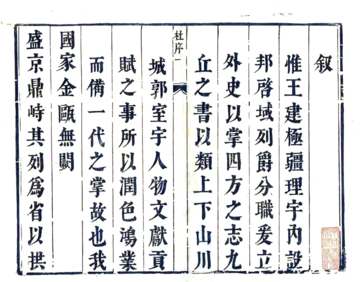 叙
惟王建極疆理宇内設
邦啓域列爵分職爰立
外史以掌四方之志九
丘之書以類上下山川
杜序一
城郭室宇人物文獻貢
賦之事所以潤色鴻業
而備一代之掌故也我
國家金甌無闕
盛京鼎峙其列爲省以拱